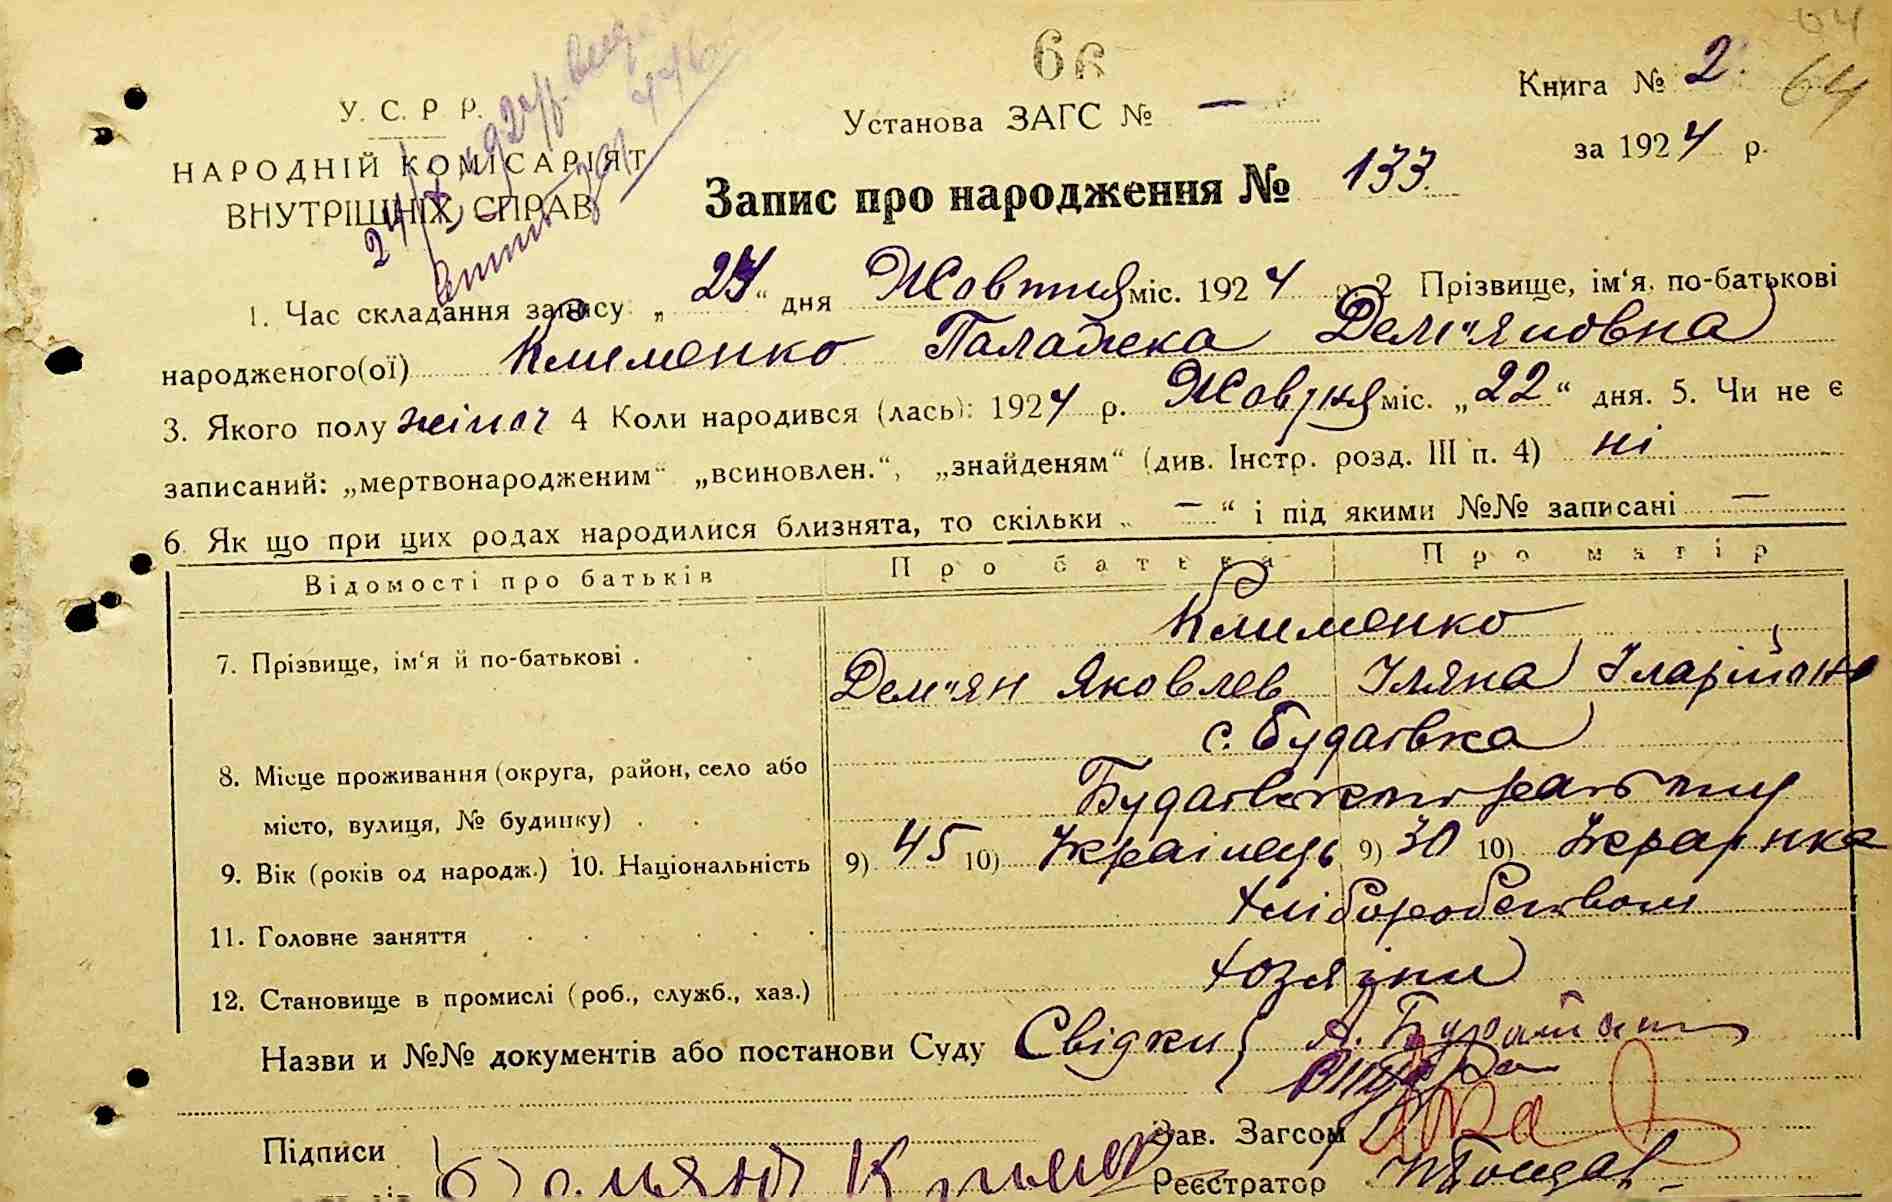 64
66
Книга № 2.
64
У. С. Р Р.
Установа ЗАГС № —
за 1924 р.
НАРОДНІЙ КОМІСАРІЯТ
ВНУТРІШНІХ СПРАВ
Запис про народження № 133
1. Час складання запису „27“ дня Жовтня міс. 1924 р. 2 Прізвище, ім‘я, по-батькові
народженого(ої) Клименко Палажка Дем"яновна
3. Якого полу жіноч 4 Коли народився (лась): 1924 р. Жовтня міс. „22“ дня. 5. Чи не є
записаний: „мертвонародженим“ „всиновлен.“, „знайденям“ (див. Інстр. розд. III п. 4) ні
6. Як що при цих родах народилися близнята, то скільки „ — “ і під якими №№ записані —
Відомості про батьків Про батька Про матір
Клименко
7. Прізвище, ім‘я й по-батькові . Дем"ян Яковлев Уляна Іларійоно
с. Будаївка
8. Місце проживання (округа, район, село або
місто, вулиця, № будинку) . Будаївського району
9. Вік (років од народж.) 10. Національність 9) 45 10) Українець 9) 30 10) Українка
11. Головне заняття Хліборобством
12. Становище в промислі (роб., служб., хаз.) Хозяіни
Назви и №№ документів або постанови Суду Свідки
Зав. Загсом
Підписи Демьян Климен
Реєстратор